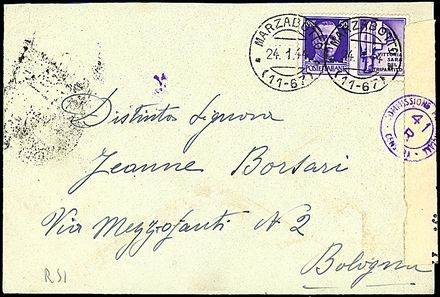 MARZABOTTO
24.1.44
(11-67)
POSTE ITALIANE
VITTORIA
SARÀ
DEL
TRIPARTITO
COMMISSIONE
41
R
Distinta Signora
Jeanne Borsari
Via Mezzofanti N 2
Bologna
RSI